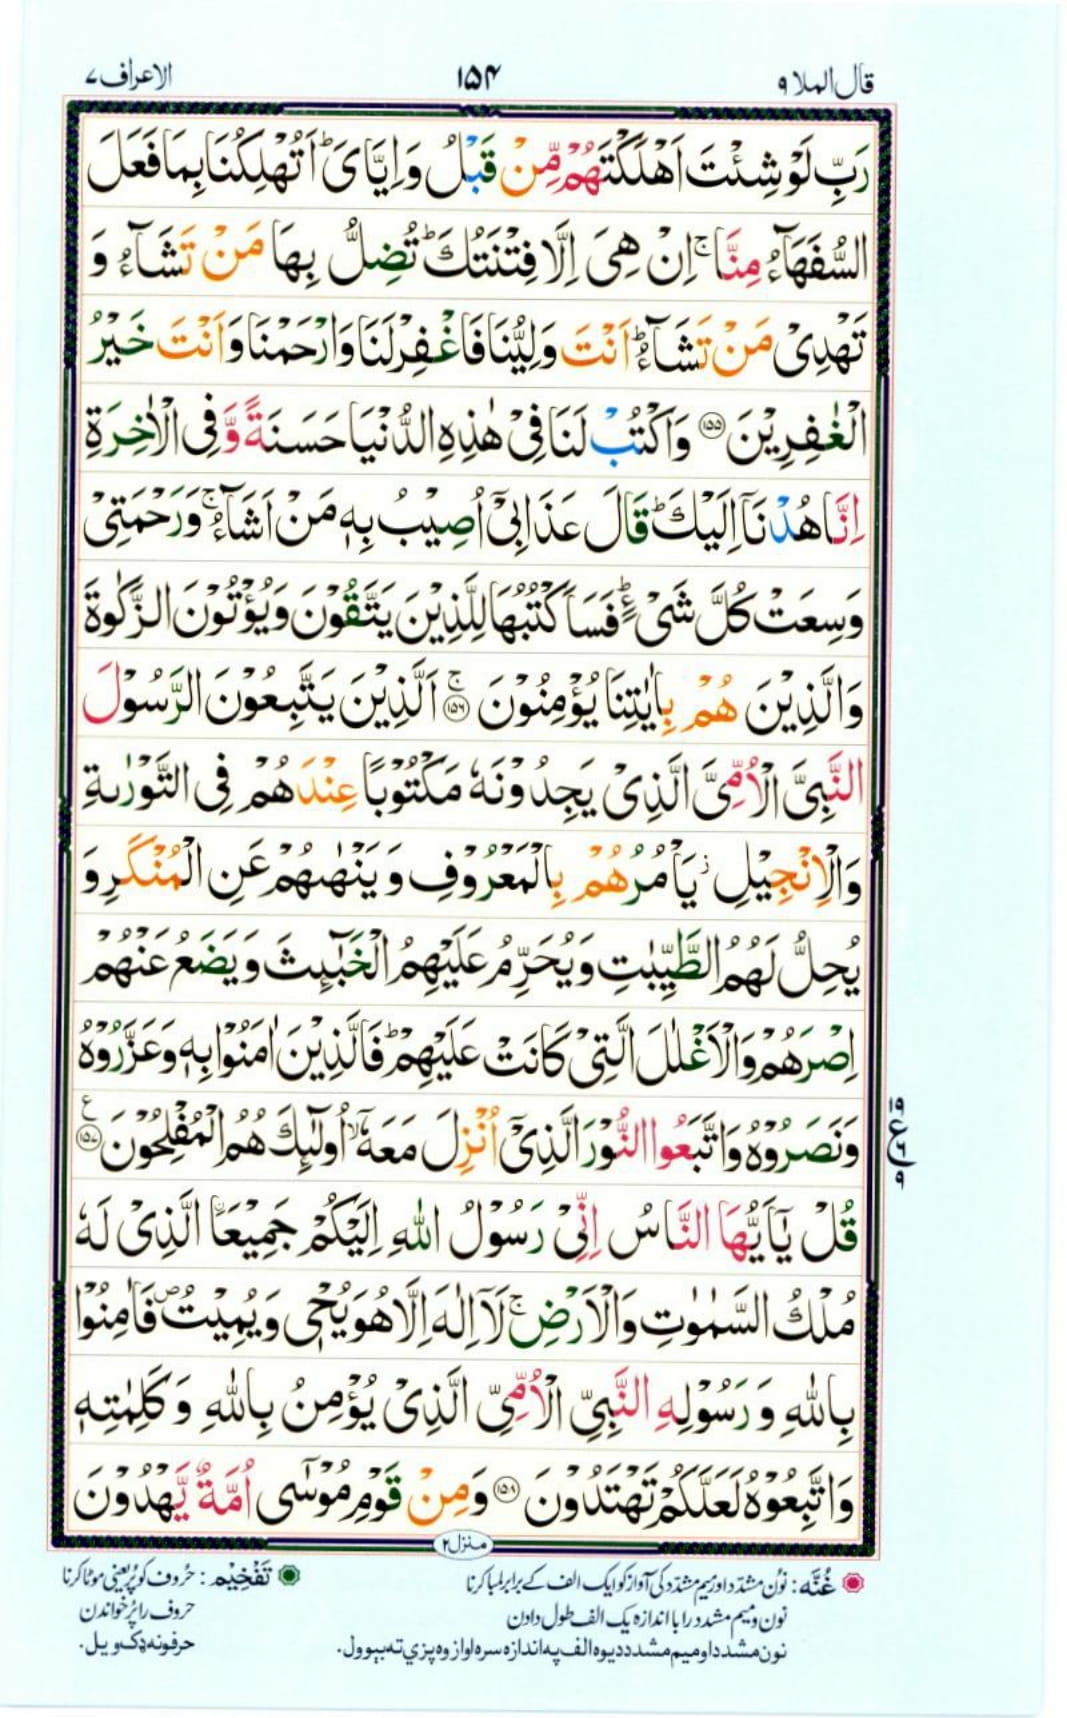 قال الملا ۹
۱۵۴
الاعراف ۷
رَبِّ لَوْ شِئْتَ اَهْلَكْتَهُمْ مِّنْ قَبْلُ وَاِيَّايَ ؕ اَتُهْلِكُنَا بِمَا فَعَلَ
السُّفَهَآءُ مِنَّا ۚ اِنْ هِيَ اِلَّا فِتْنَتُكَ ؕ تُضِلُّ بِهَا مَنْ تَشَآءُ وَ
تَهْدِيْ مَنْ تَشَآءُ ؕ اَنْتَ وَلِيُّنَا فَاغْفِرْ لَنَا وَارْحَمْنَا وَاَنْتَ خَيْرُ
الْغٰفِرِيْنَ ۱۵۵ وَاكْتُبْ لَنَا فِيْ هٰذِهِ الدُّنْيَا حَسَنَةً وَّفِي الْاٰخِرَةِ
اِنَّا هُدْنَآ اِلَيْكَ ؕ قَالَ عَذَابِيْٓ اُصِيْبُ بِهٖ مَنْ اَشَآءُ ۚ وَرَحْمَتِيْ
وَسِعَتْ كُلَّ شَيْءٍ ؕ فَسَاَكْتُبُهَا لِلَّذِيْنَ يَتَّقُوْنَ وَيُؤْتُوْنَ الزَّكٰوةَ
وَالَّذِيْنَ هُمْ بِاٰيٰتِنَا يُؤْمِنُوْنَ ۱۵۶ ۚ اَلَّذِيْنَ يَتَّبِعُوْنَ الرَّسُوْلَ
النَّبِيَّ الْاُمِّيَّ الَّذِيْ يَجِدُوْنَهٗ مَكْتُوْبًا عِنْدَهُمْ فِي التَّوْرٰىةِ
وَالْاِنْجِيْلِ ز يَاْمُرُهُمْ بِالْمَعْرُوْفِ وَيَنْهٰىهُمْ عَنِ الْمُنْكَرِ وَ
يُحِلُّ لَهُمُ الطَّيِّبٰتِ وَيُحَرِّمُ عَلَيْهِمُ الْخَبٰٓئِثَ وَيَضَعُ عَنْهُمْ
اِصْرَهُمْ وَالْاَغْلٰلَ الَّتِيْ كَانَتْ عَلَيْهِمْ ؕ فَالَّذِيْنَ اٰمَنُوْا بِهٖ وَعَزَّرُوْهُ
وَنَصَرُوْهُ وَاتَّبَعُوا النُّوْرَ الَّذِيْٓ اُنْزِلَ مَعَهٗٓ ۙ اُولٰٓئِكَ هُمُ الْمُفْلِحُوْنَ ۱۵۷ ع
قُلْ يٰٓاَيُّهَا النَّاسُ اِنِّيْ رَسُوْلُ اللّٰهِ اِلَيْكُمْ جَمِيْعًا الَّذِيْ لَهٗ
مُلْكُ السَّمٰوٰتِ وَالْاَرْضِ ۚ لَآ اِلٰهَ اِلَّا هُوَ يُحْيٖ وَيُمِيْتُ ص فَاٰمِنُوْا
بِاللّٰهِ وَرَسُوْلِهِ النَّبِيِّ الْاُمِّيِّ الَّذِيْ يُؤْمِنُ بِاللّٰهِ وَكَلِمٰتِهٖ
وَاتَّبِعُوْهُ لَعَلَّكُمْ تَهْتَدُوْنَ ۱۵۸ وَمِنْ قَوْمِ مُوْسٰٓى اُمَّةٌ يَّهْدُوْنَ
منزل۲
غُنَّه: نون مشدّد اور میم مشدّد کی آواز کو ایک الف کے برابر لمبا کرنا
نون و میم مشدد را با اندازه یک الف طول دادن
نون مشدد او میم مشدد دیوه الف په اندازه سره اواز وه پزې ته بیوول.
تَفْخِيْم: حُروف کو پُر یعنی موٹا کرنا
حروف را پُر خواندن
حرفونه ډک ویل.